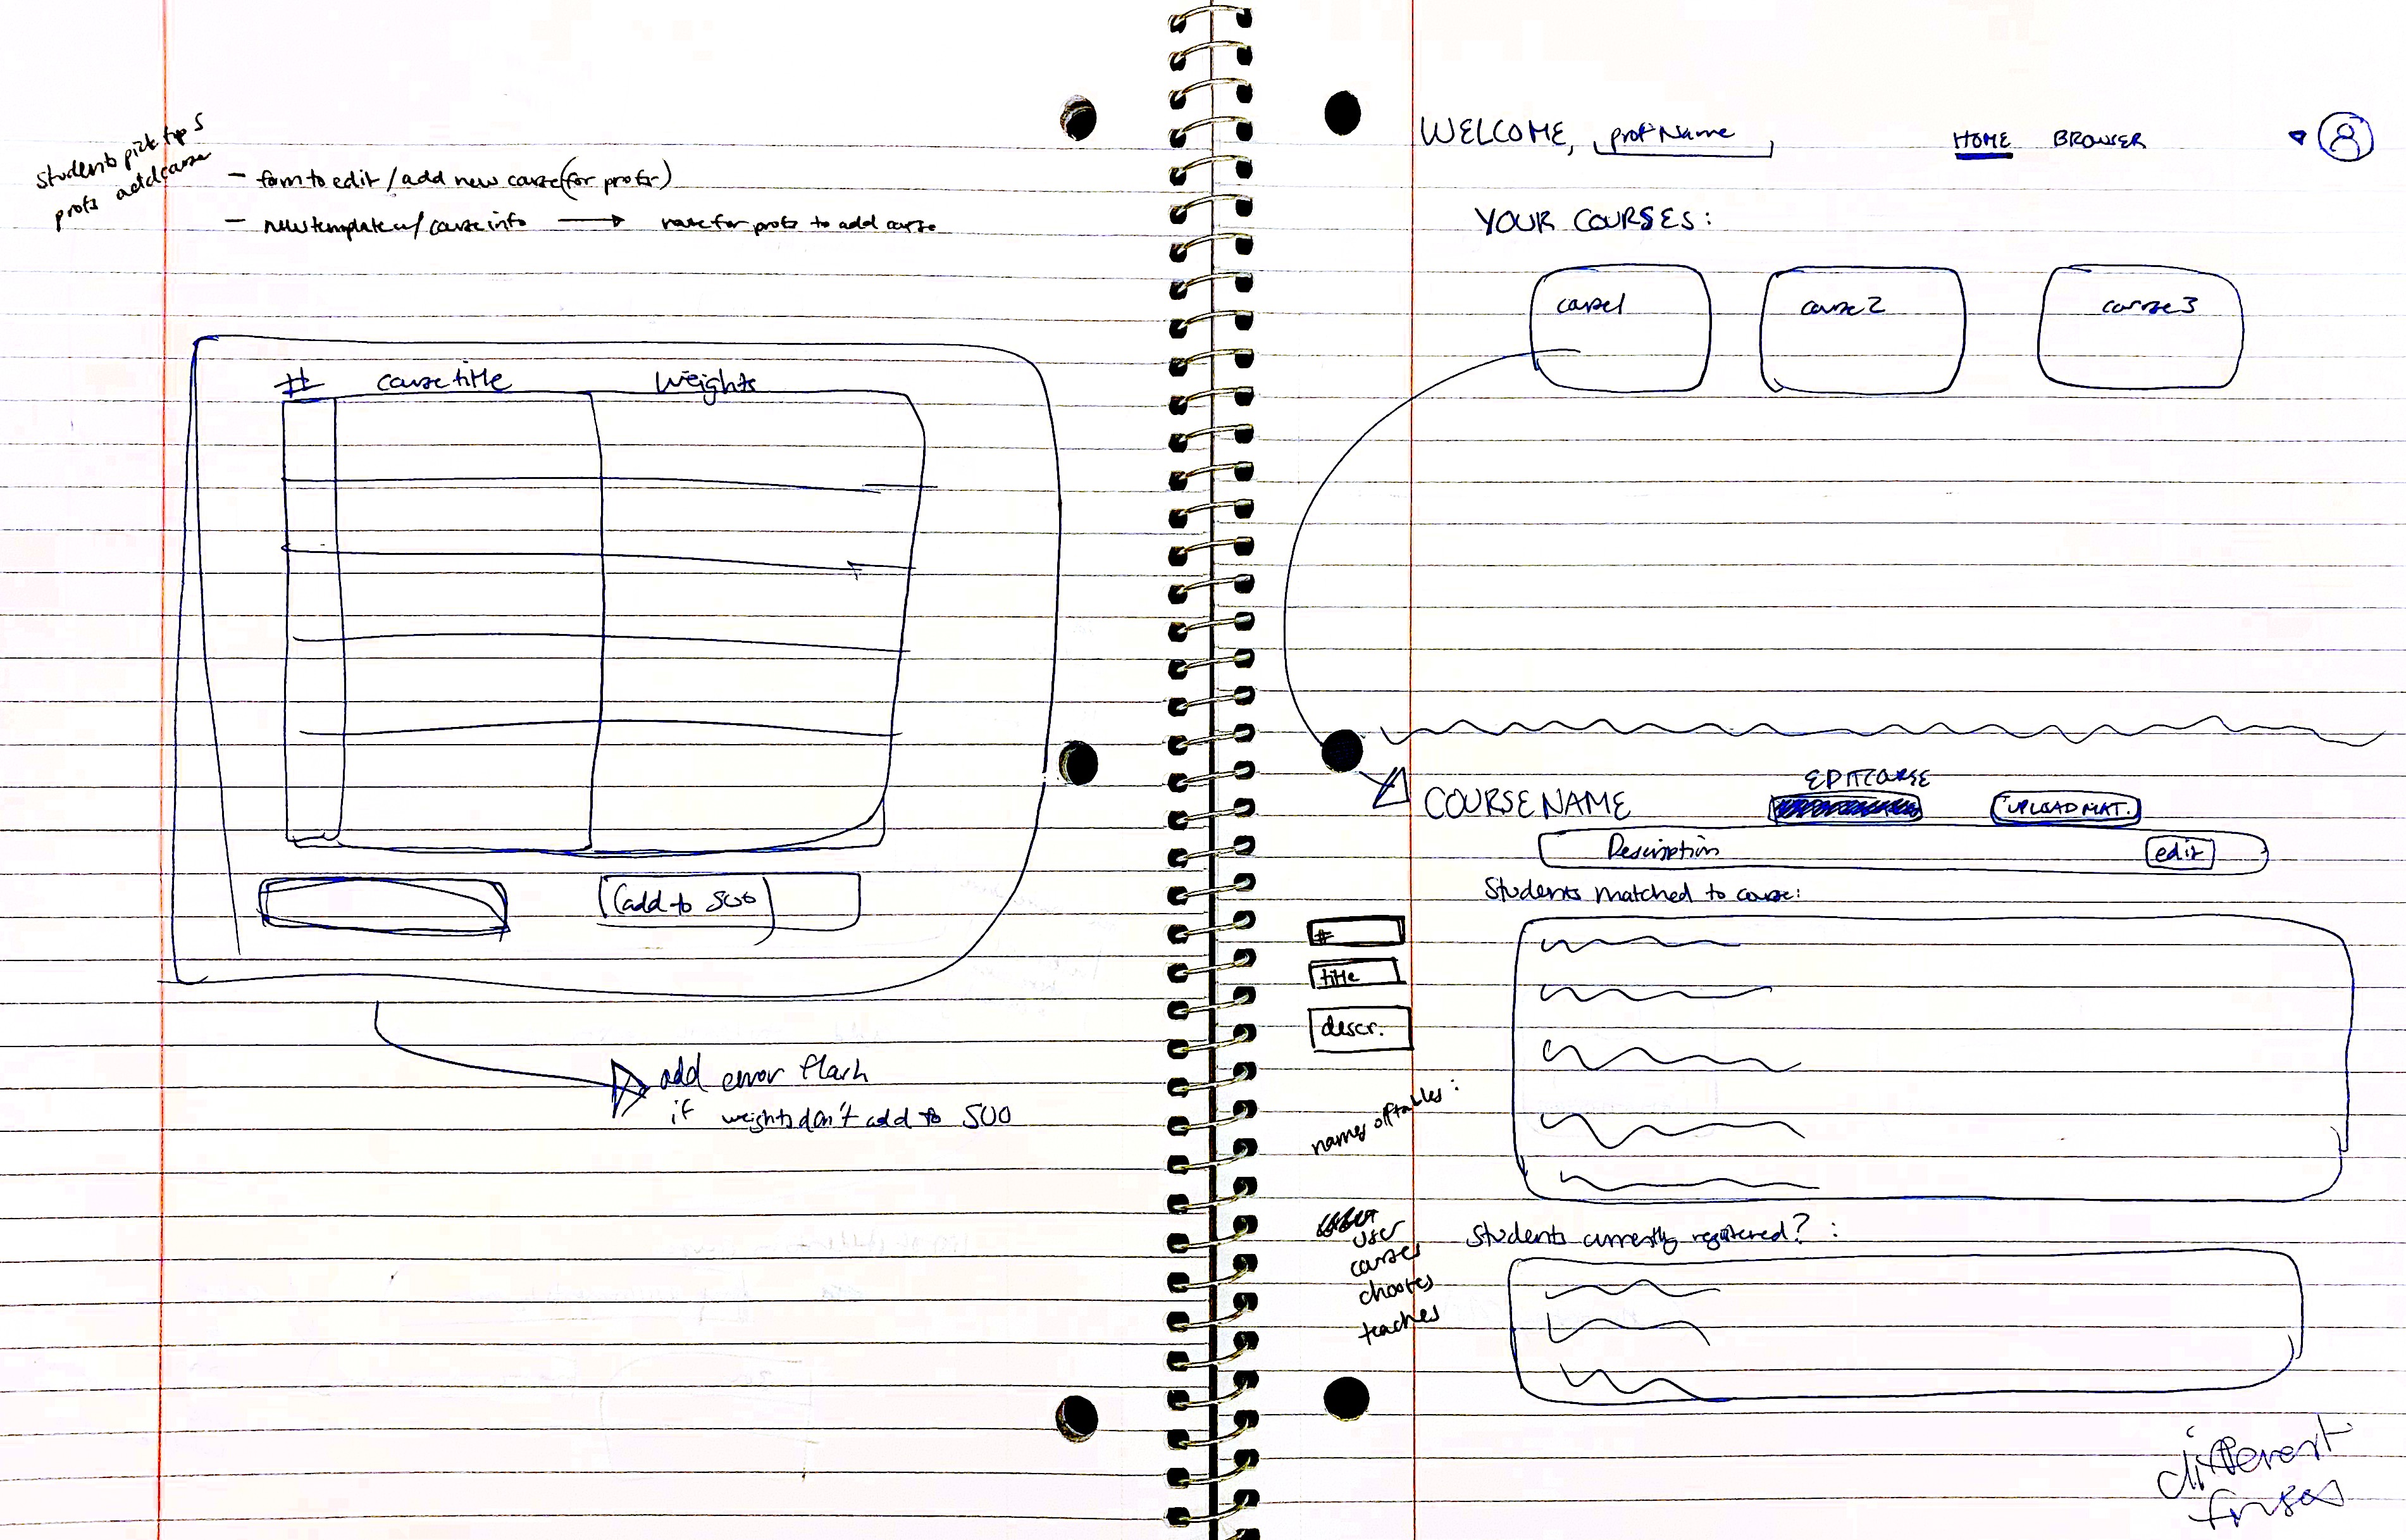 students pick top 5
profs add course
- form to edit / add new course (for profs)
- new template w/ course info → route for profs to add course
# course title weights
(add to 500)
add error flash
if weights don't add to 500
WELCOME, prof Name
HOME BROWSER
YOUR COURSES:
course1 course 2 course 3
EDIT COURSE
COURSE NAME UPLOAD MAT.
Description edit
Students matched to course:
#
title
descr.
names of tables:
user
courses
chooses
teaches
Students currently registered? :
different